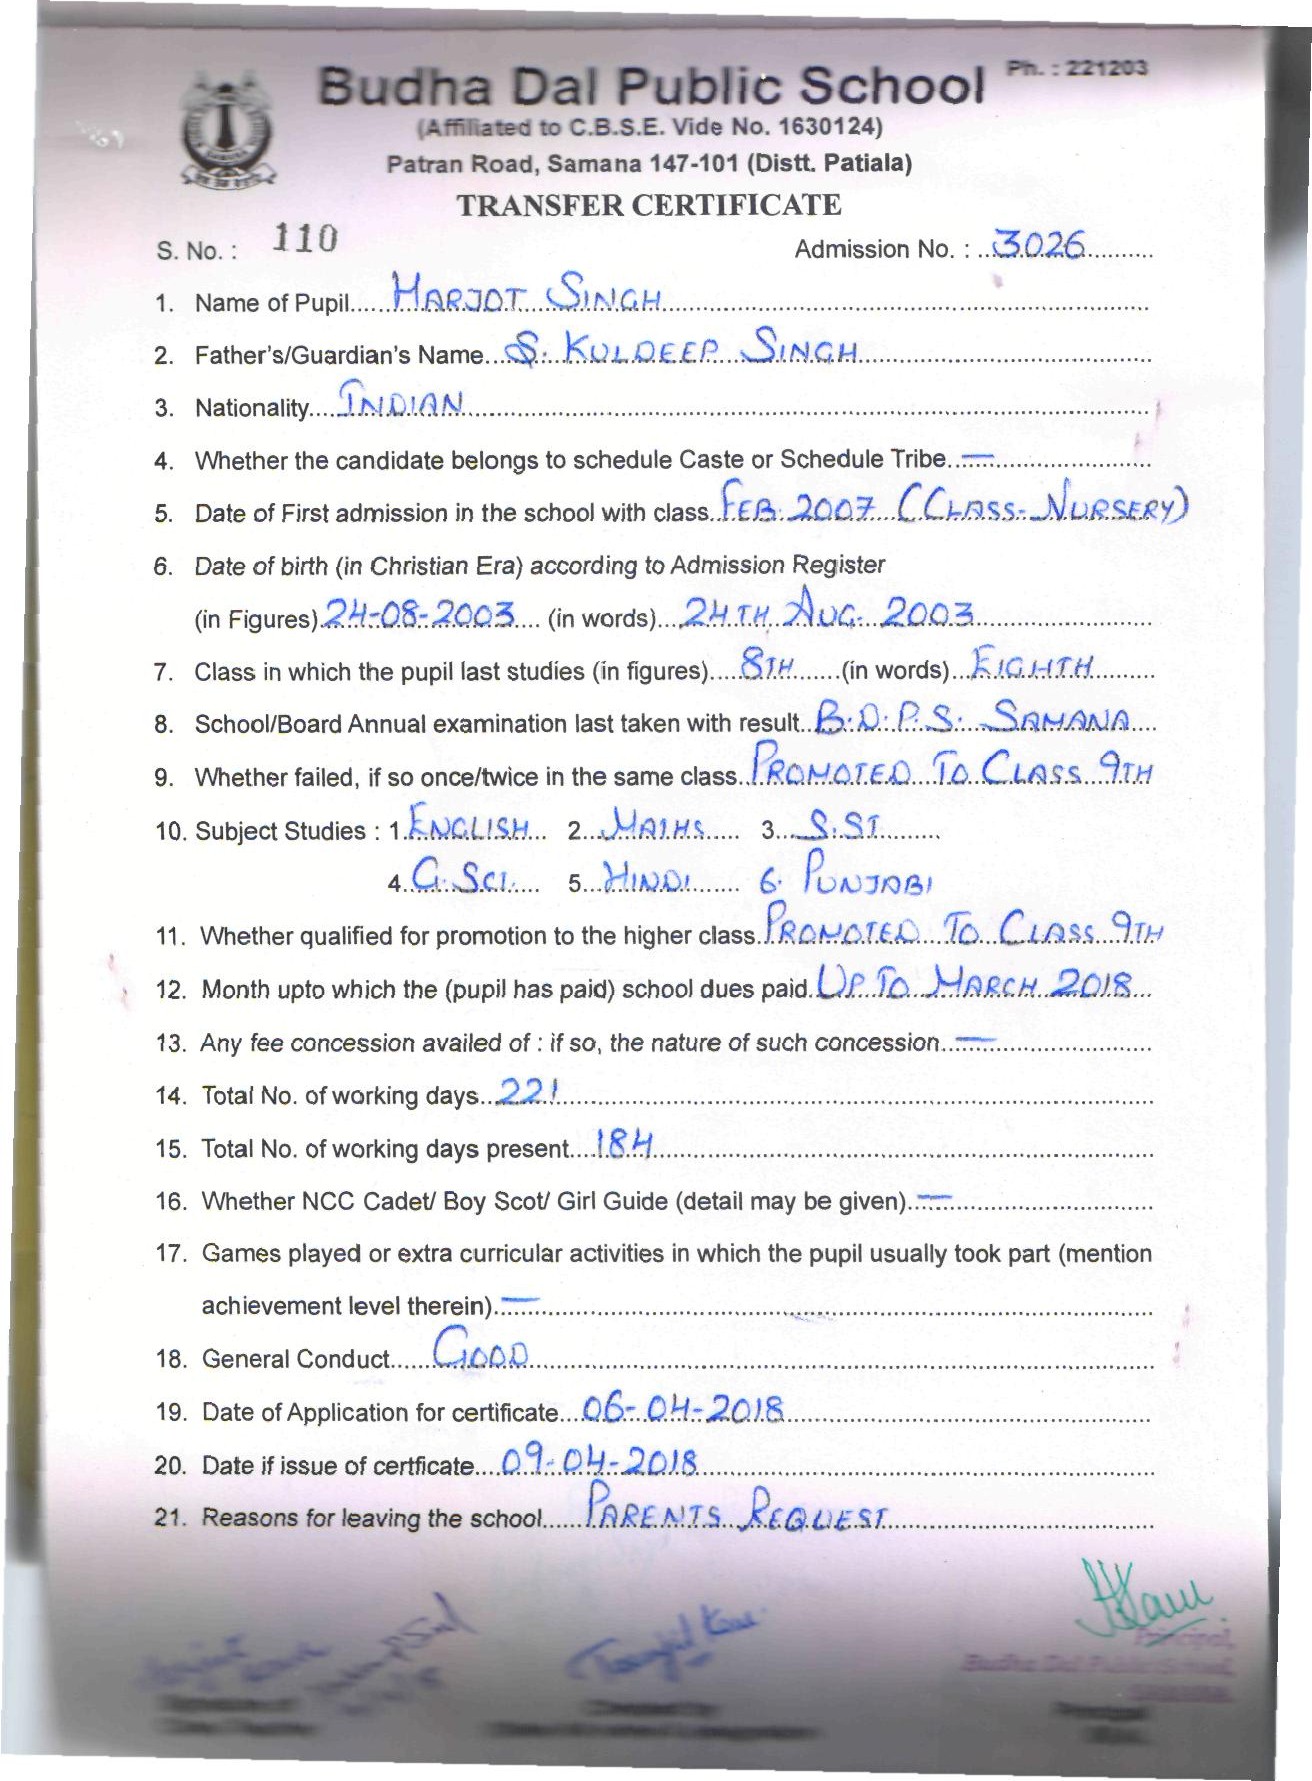 Budha Dal Public School Ph. : 221203
(Affiliated to C.B.S.E. Vide No. 1630124)
Patran Road, Samana 147-101 (Distt. Patiala)
TRANSFER CERTIFICATE
S. No. : 110 Admission No. : 3026
1. Name of Pupil HARJOT SINGH
2. Father's/Guardian's Name S. KULDEEP SINGH
3. Nationality INDIAN
4. Whether the candidate belongs to schedule Caste or Schedule Tribe —
5. Date of First admission in the school with class FEB. 2007 (CLASS-NURSERY)
6. Date of birth (in Christian Era) according to Admission Register
(in Figures) 24-08-2003 (in words) 24TH AUG. 2003
7. Class in which the pupil last studies (in figures) 8TH (in words) EIGHTH
8. School/Board Annual examination last taken with result B.D.P.S. SAMANA
9. Whether failed, if so once/twice in the same class PROMOTED TO CLASS 9TH
10. Subject Studies : 1. ENGLISH 2. MATHS 3. S.ST.
4. G.SCI. 5. HINDI 6. PUNJABI
11. Whether qualified for promotion to the higher class PROMOTED TO CLASS 9TH
12. Month upto which the (pupil has paid) school dues paid UP TO MARCH 2018
13. Any fee concession availed of : if so, the nature of such concession —
14. Total No. of working days 221
15. Total No. of working days present 184
16. Whether NCC Cadet/ Boy Scot/ Girl Guide (detail may be given) —
17. Games played or extra curricular activities in which the pupil usually took part (mention
achievement level therein) —
18. General Conduct GOOD
19. Date of Application for certificate 06-04-2018
20. Date if issue of certficate 09-04-2018
21. Reasons for leaving the school PARENTS REQUEST
Principal,
Budha Dal Public School,